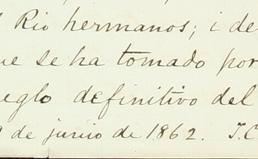 Rio hermanos; i de
se ha tomado por
eglo definitivo del
de junio de 1862. I. C